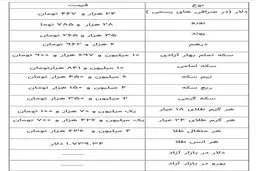 نوع	قیمت
دلار (در صرافی های رسمی )	۲۴ هزار و ۴۶۷ تومان
یورو	۲۸ هزار و ۷۸۵ توما
پوند	۳۵ هزار و ۲۶۵ تومان
درهم	۶ هزار و ۹۶۲ تومان
سکه تمام بهار آزادی	۱۰ میلیون و ۶۹۷ هزار و ۹۰۰ تومان
سکه امامی	۱۰ میلیون و ۸۴۱ هزارتومان
نیم سکه	۶ میلیون و ۴۵۰ هزار تومان
ربع سکه	۴ میلیون و ۱۵۰ هزار تومان
سکه گرمی	۲ میلیون و ۳۵۰ هزار تومان
هر گرم طلای ۱۸ عیار	یک میلیون و ۷۰ هزار و ۱۰۰ تومان
هر گرم طلای ۲۴ عیار	یک میلیون و ۴۲۶ هزار و ۷۰۰ تومان
هر مثقال طلا	۴ میلیون و ۶۳۶ هزار تومان
هر انس طلا	۱.۷۳۹.۳۴ دلار
دلار در بازار آزاد	ــــــــ
یورو در بازار آزاد	ــــــــ